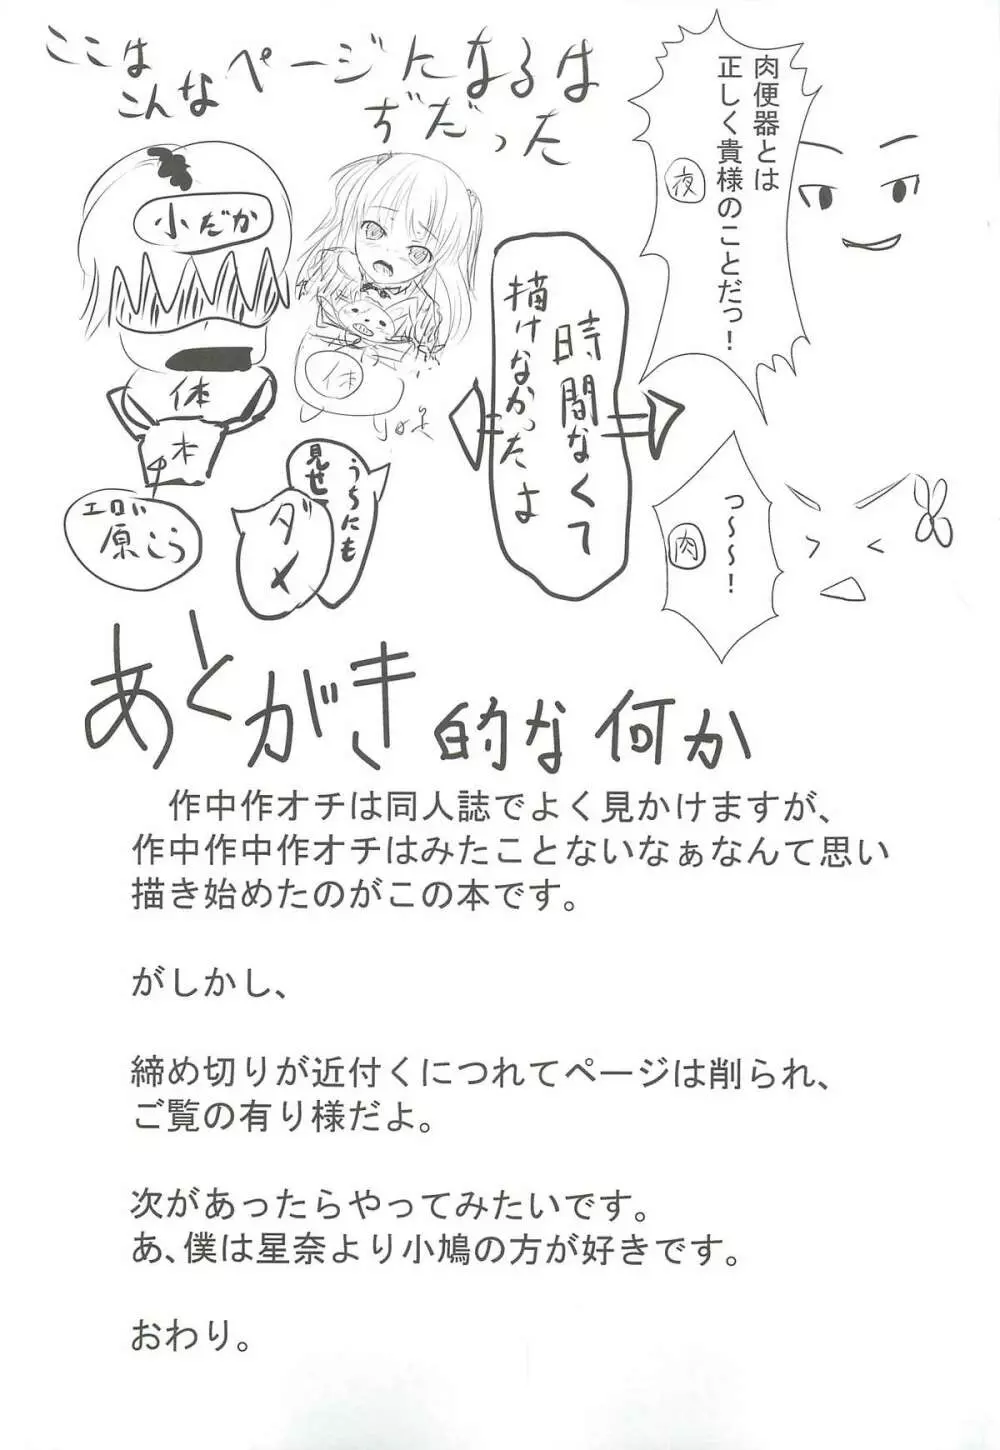 ここは
こんなページになるは
ぢだった
肉便器とは
正しく貴様のことだっ！
夜
小だか
体
本
体
時間なくて
描けなかったよ
エロい
原こう
うちにも
見せ
ダメ
っ～～～！
肉
あとがき的な何か
作中作オチは同人誌でよく見かけますが、
作中作中作オチはみたことないなぁなんて思い
描き始めたのがこの本です。
がしかし、
締め切りが近付くにつれてページは削られ、
ご覧の有り様だよ。
次があったらやってみたいです。
あ、僕は星奈より小鳩の方が好きです。
おわり。